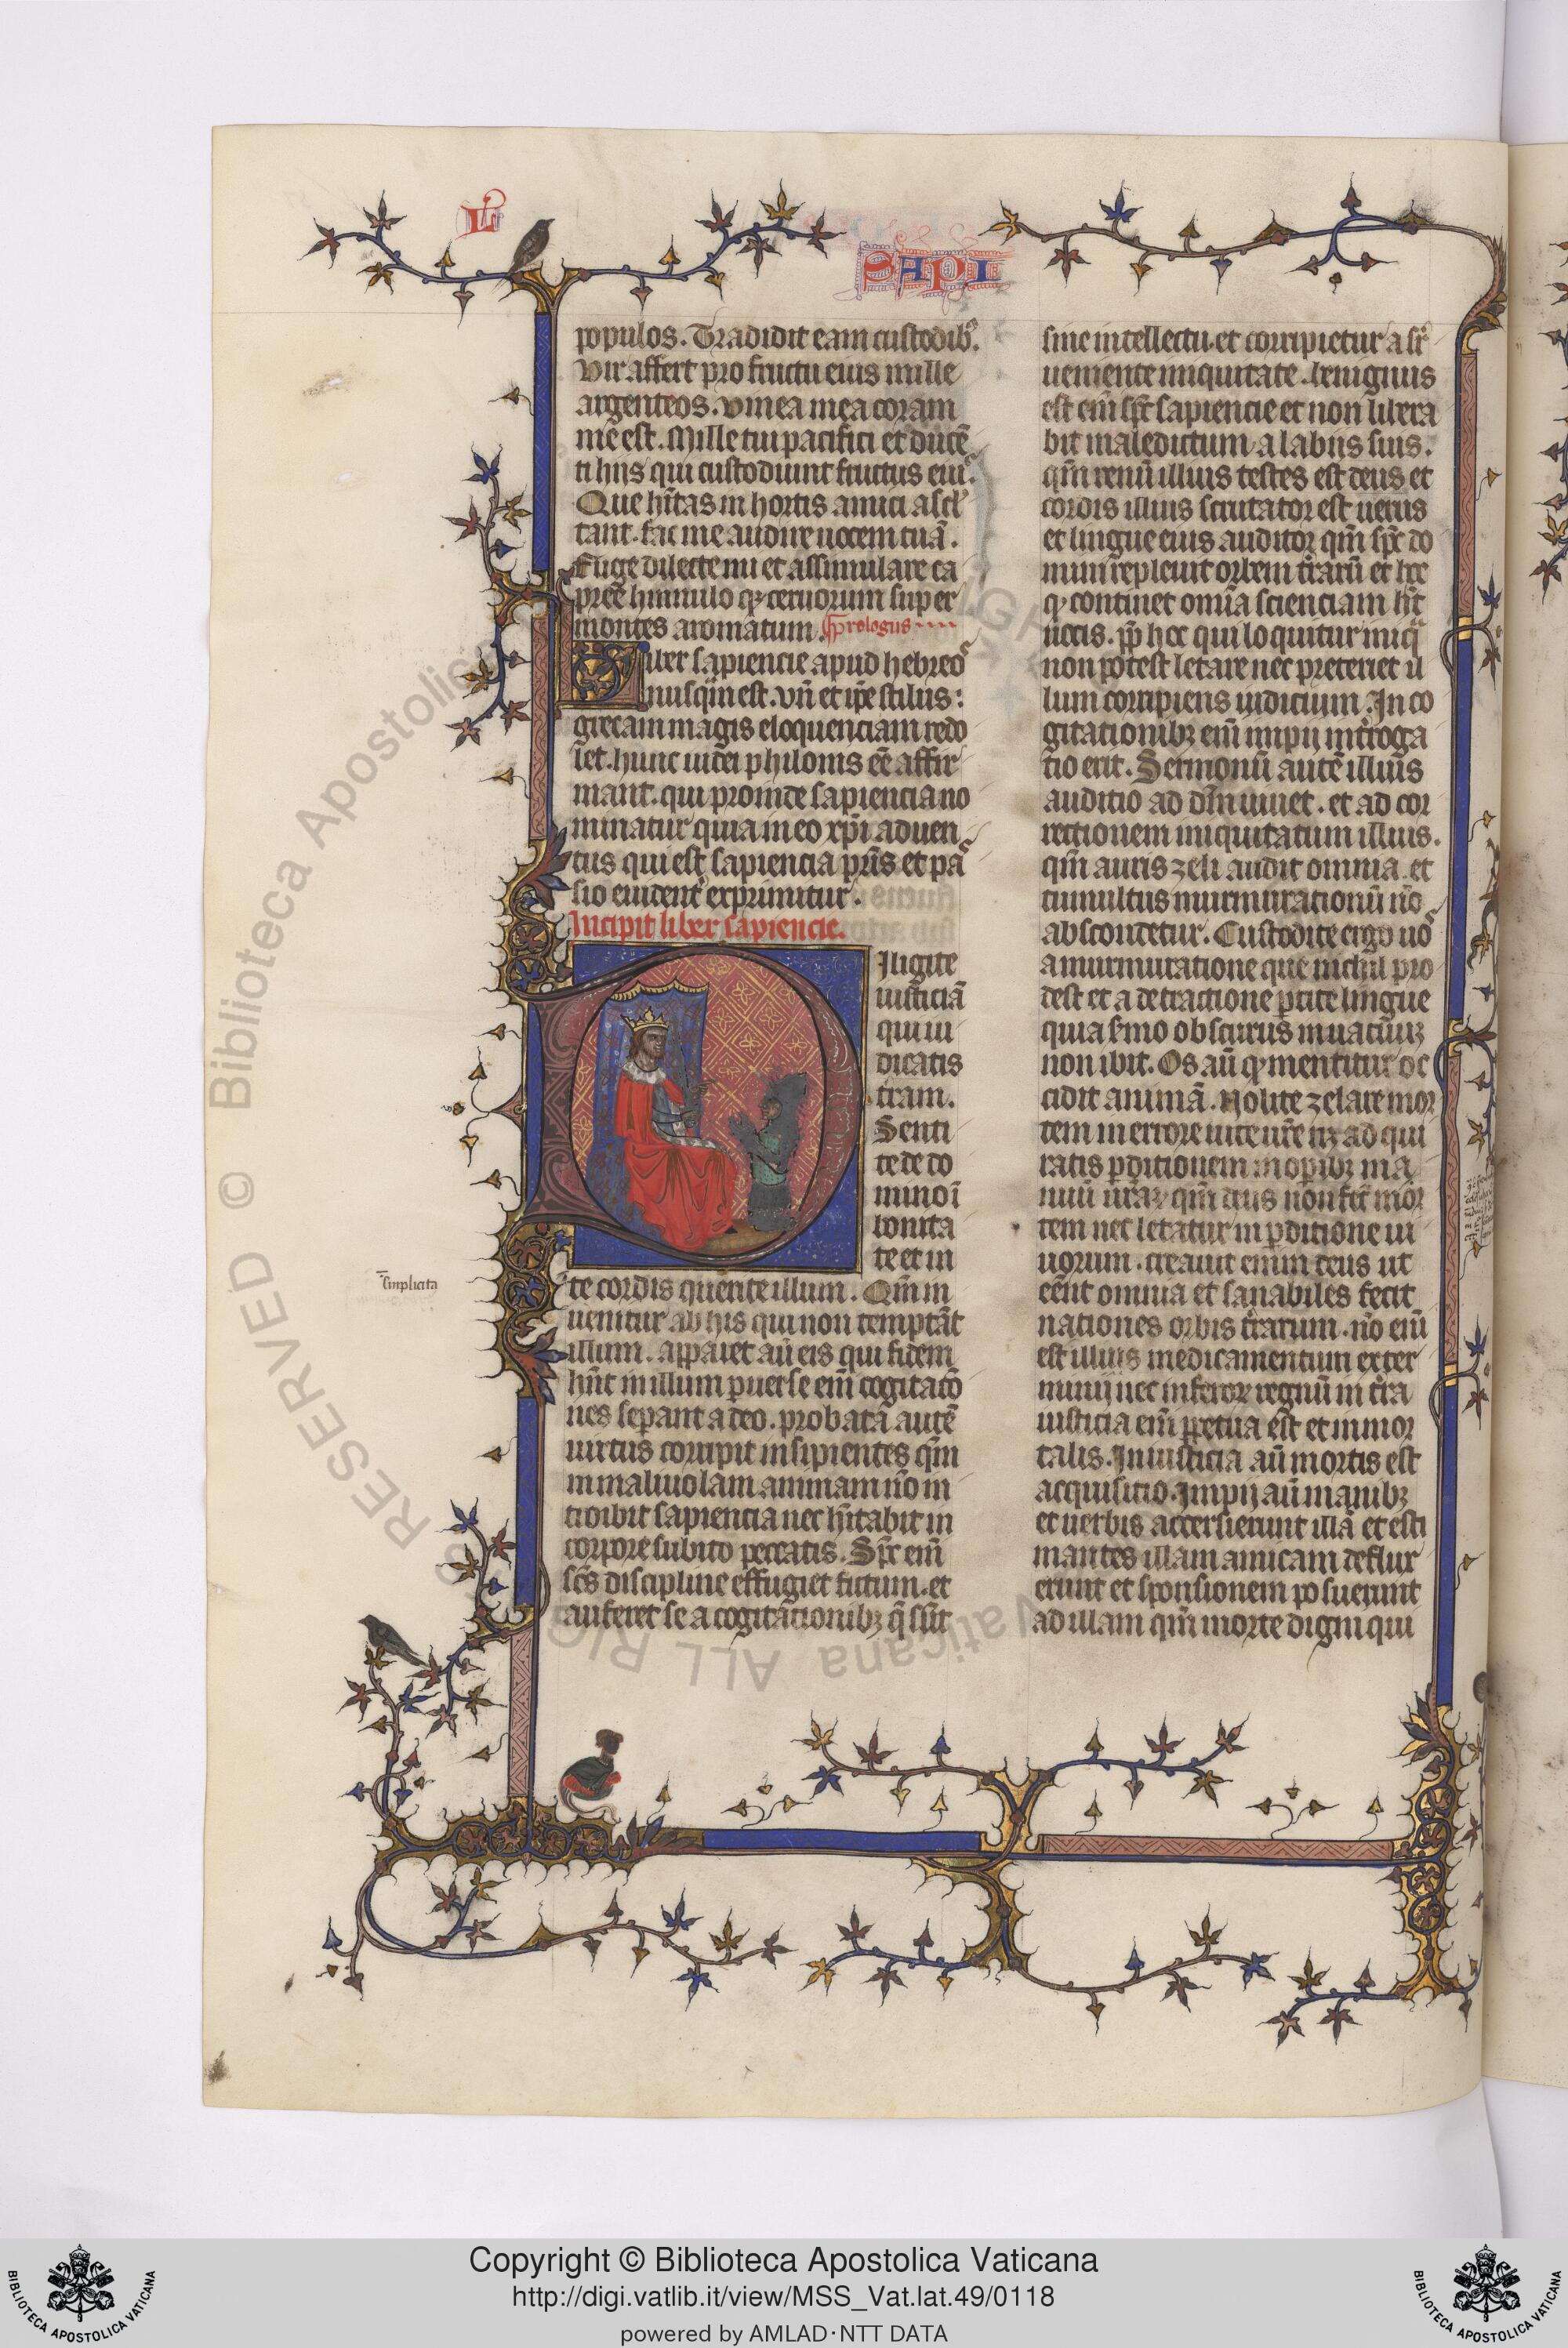 L
SAPI
populos. Tradidit eam custodib9.
vir affert pro fructu eius mille
argenteos. vinea mea coram
me est. Mille tui pacifici et ducē
ti hijs qui custodiunt fructus eius.
Que hītas in hortis amici ascl
tant. fac me audire uocem tuā.
fuge dilecte mi et assimulare ca
preē hinnulo qȝ ceruorum super
montes aromatum. Prologus
Liber sapiencie apud hebreos
nusq̄m est. vn̄ et ip̄e stilus:
grecam magis eloquenciam redo
let. hunc iudei philonis eē affir
mant. qui proinde sapiencia no
minatur quia in eo xp̄i aduen
tus qui est sapiencia pr̄is et pas
sio euident̄ exprimitur.
Incipit liber sapiencie.
Diligite
iusticiā
qui iu
dicatis
t̄ram.
Senti
te de do
mino ī
bonita
te et in
simplicita
te cordis querite illum. Qm̄ in
uenitur ab his qui non temptāt
illum. apparet aū eis qui fidem
hn̄t in illum peruerse em̄ cogitacō
nes sep̄ant a deo. probata autē
uirtus corripit insipientes qm̄
in maliuolam animam nō in
troibit sapiencia nec hītabit in
corpore subdito peccatis. Sp̄c em̄
sc̄s discipline effugiet fictum. et
auferet se a cogitationibȝ q̄ sūt
sine intellectu. et corripietur a su
ueniente iniquitate. benignus
est em̄ sp̄c sapiencie et non libera
bit maledictum a labijs suis.
qm̄ renū illius testes est deus et
cordis illius scrutator est uerus
et lingue eius auditor qm̄ sp̄c do
mini repleuit orbem t̄rarū et hoc
qȝ continet om̄ia scienciam ht̄
uocis. pp̄ hoc qui loquitur iniq̄
non potest letare nec preteriet il
lum corripiens iudicium. In co
gitationibȝ em̄ impij int̄roga
tio erit. Sermonū autē illius
auditio ad dm̄ uiuet. et ad cor
rectionem iniquitatum illius.
qm̄ auris zeli audit omnia. et
tumultus murmurationū nō
abscondetur. Custodite ergo uos
a murmuratione que nichil pro
dest et a detractione p̄cite lingue
quia s̄mo obscurus in uacuū
non ibit. Os aū qȝ mentitur oc
cidit animā. Nolite zelare mor
tem in errore uite ur̄e nȝ ad qui
ratis p̄ditionem in op̄ibȝ ma
nuū ur̄aȝ qm̄ deus non fec̄ mor
tem nec letatur in p̄ditione ui
uorum. creauit enim deus ut
eēnt omnia et sanabiles fecit
nationes orbis t̄rarum. nō em̄
est illius medicamentum exter
minij nec inferoȝ regnū in t̄ra
iusticia em̄ p̄petua est et inmor
talis. Iniusticia aū mortis est
acquisitio. Impij aū manibȝ
et uerbis accersierunt illā et esti
mantes illam amicam deflux
erunt et sponsionem posuerunt
ad illam qm̄ morte digni qui
© Biblioteca Apostolica Vaticana ALL RIGHTS RESERVED
Copyright © Biblioteca Apostolica Vaticana
http://digi.vatlib.it/view/MSS_Vat.lat.49/0118
powered by AMLAD·NTT DATA
BIBLIOTECA APOSTOLICA VATICANA
BIBLIOTECA APOSTOLICA VATICANA